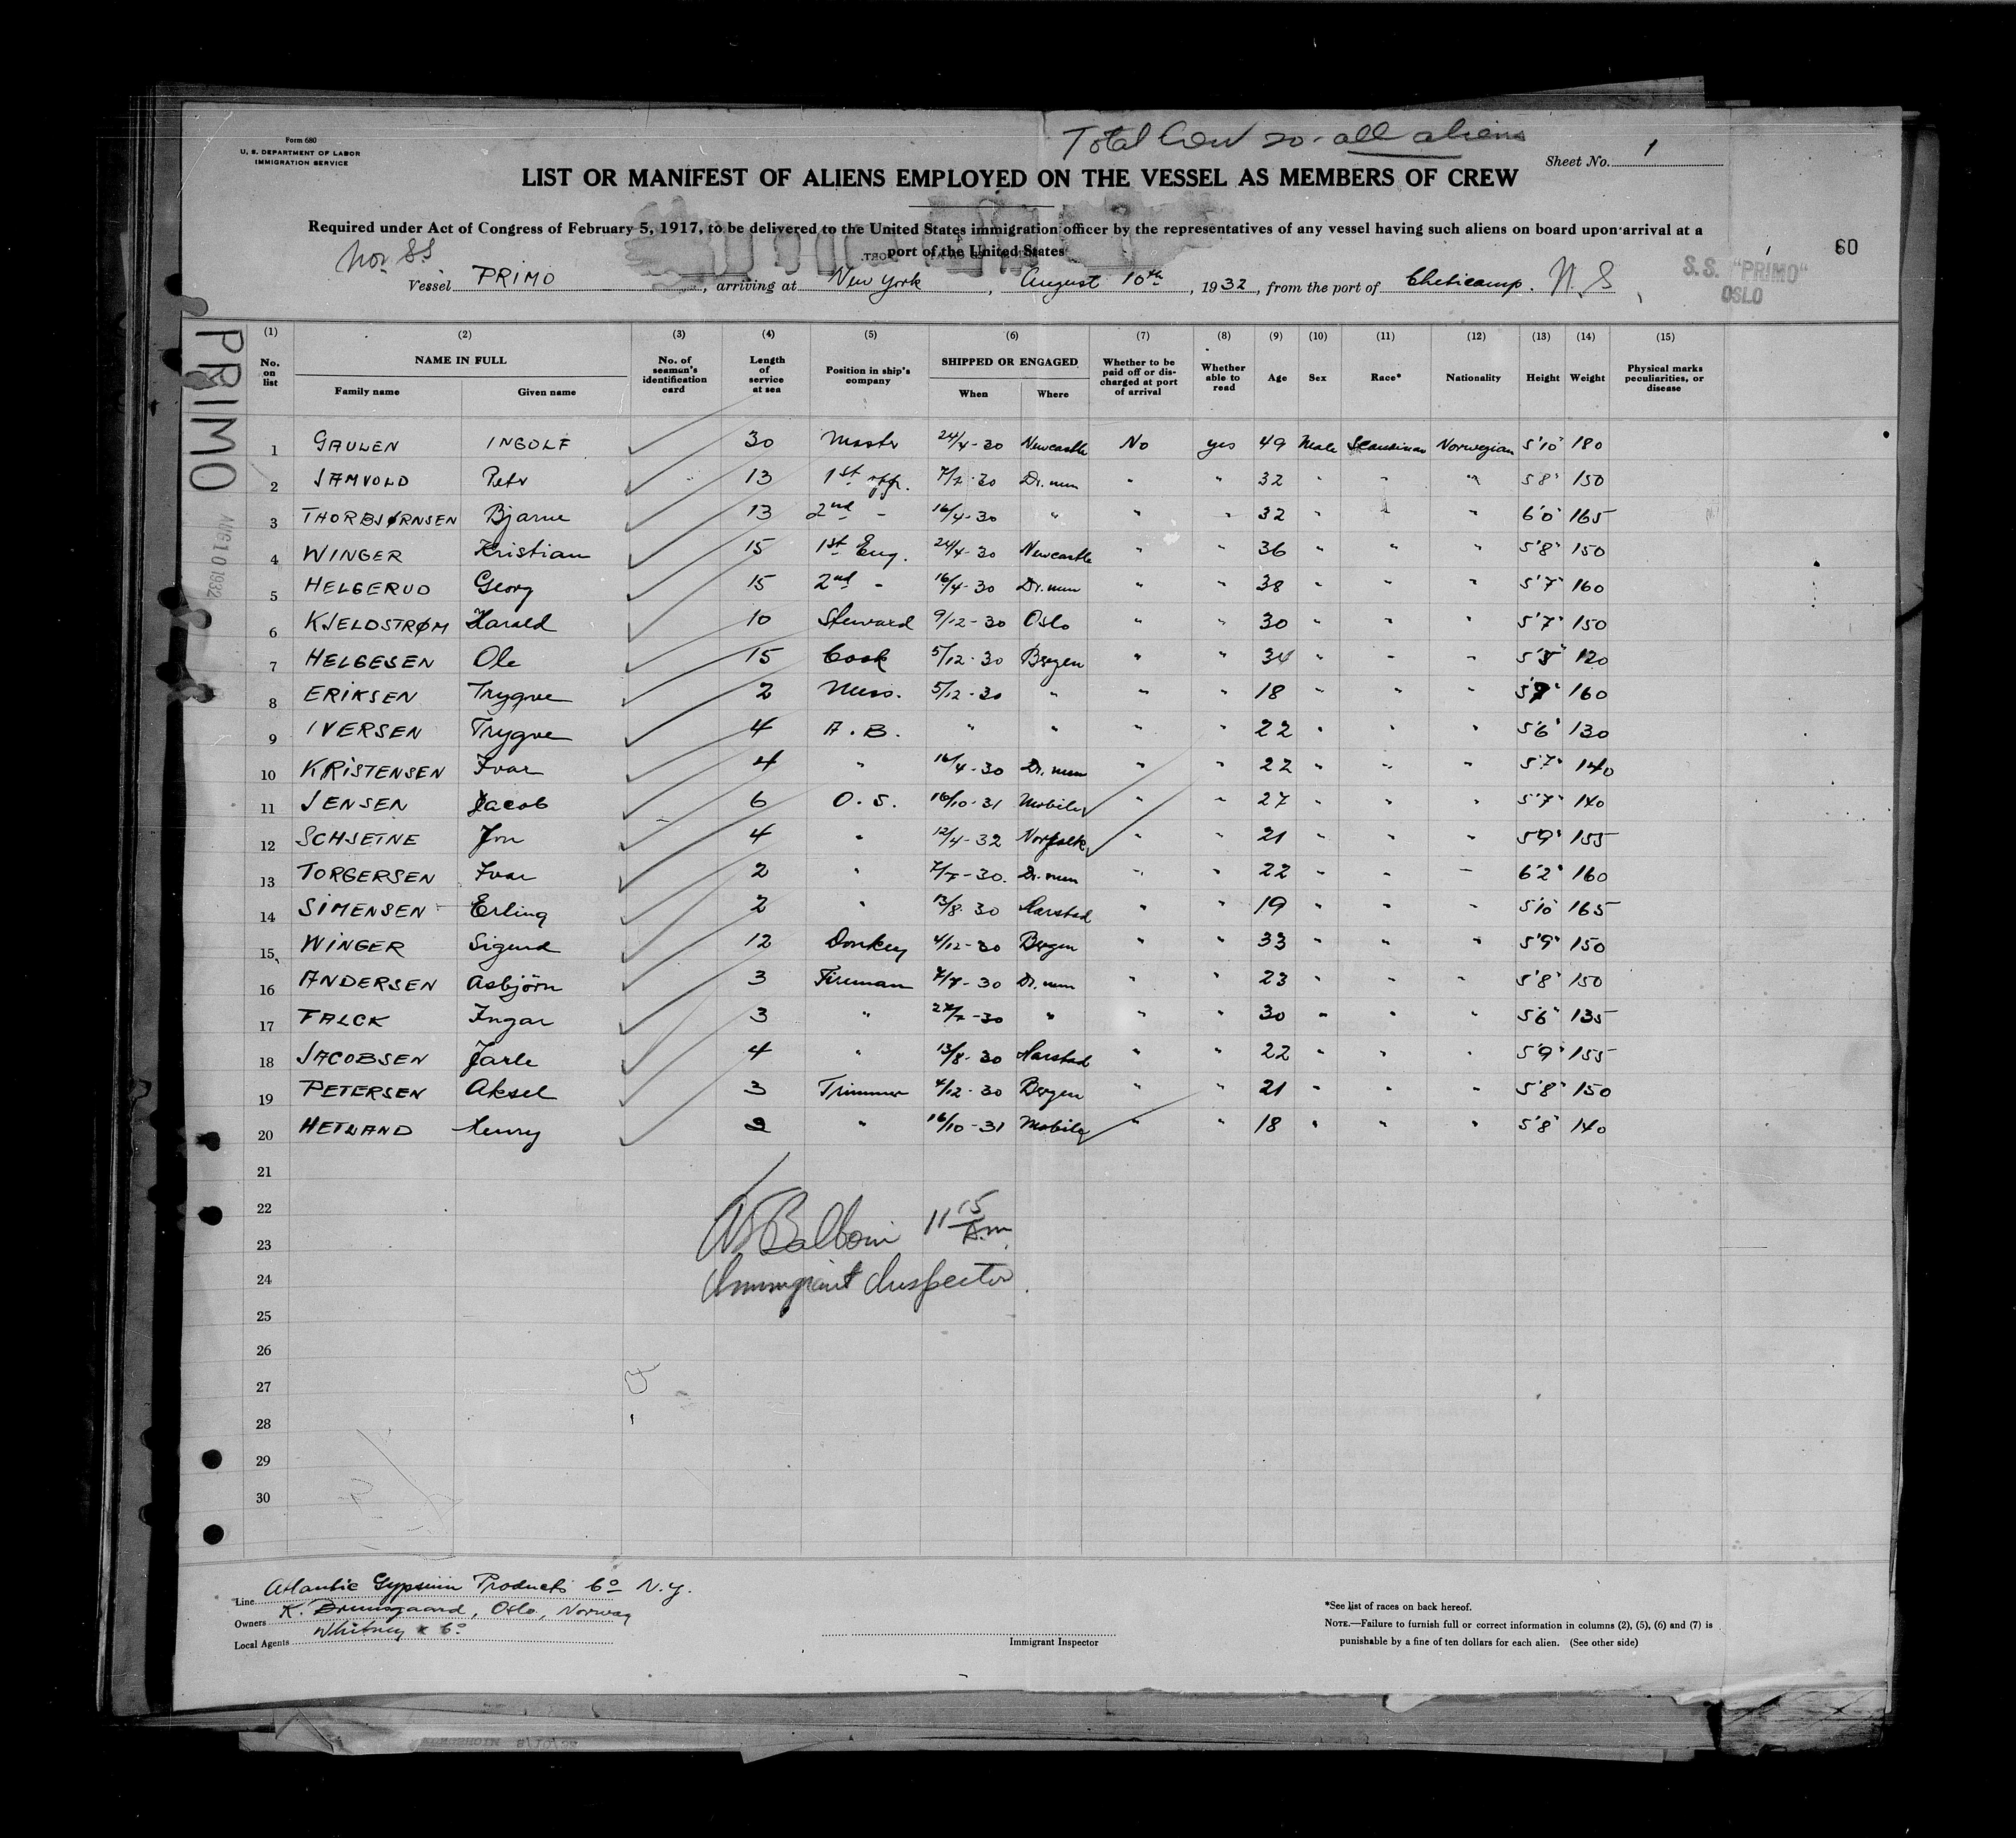 Total Crew 20 - all aliens
Form 680
U. S. DEPARTMENT OF LABOR
IMMIGRATION SERVICE
Sheet No. 1
LIST OR MANIFEST OF ALIENS EMPLOYED ON THE VESSEL AS MEMBERS OF CREW
Required under Act of Congress of February 5, 1917, to be delivered to the United States immigration officer by the representatives of any vessel having such aliens on board upon arrival at a
port of the United States
60
Nor. SS
Vessel PRIMO, arriving at New York, August 10th, 1932, from the port of Cheticamp. N. S
S. S. "PRIMO"
OSLO
PRIMO
AUG 10 1932
(1) (2) (3) (4) (5) (6) (7) (8) (9) (10) (11) (12) (13) (14) (15)
No. on list NAME IN FULL Family name Given name No. of seaman's identification card Length of service at sea Position in ship's company SHIPPED OR ENGAGED When Where Whether to be paid off or discharged at port of arrival Whether able to read Age Sex Race* Nationality Height Weight Physical marks peculiarities, or disease
1 GAULEN INGOLF 30 Master 24/4-30 Newcastle No yes 49 Male Scandinav Norwegian 5'10" 180
2 JAMVOLD Petr 13 1st offr. 7/7-30 Dr.mmn " " 32 " " " 5'8" 150
3 THORBJØRNSEN Bjarne 13 2nd - 16/4-30 " " " 32 " " " 6'0" 165
4 WINGER Kristian 15 1st Eng. 24/4-30 Newcastle " " 36 " " " 5'8" 150
5 HELGERUD Georg 15 2nd - 16/4-30 Dr.mmn " " 38 " " " 5'7" 160
6 KJELDSTRØM Harald 10 Steward 9/12-30 Oslo " " 30 " " " 5'7" 150
7 HELGESEN Ole 15 Cook 5/12-30 Bergen " " 34 " " " 120
8 ERIKSEN Trygve 2 Mess. 5/12-30 " " " 18 " " " 160
9 IVERSEN Trygve 4 A.B. " " " " 22 " " " 5'6" 130
10 KRISTENSEN Ivar 4 " 16/4-30 Dr.mmn " " 22 " " " 5'7" 140
11 JENSEN Jacob 6 O.S. 16/10-31 Mobile " " 27 " " " 5'7" 140
12 SCHJETNE Jon 4 " 12/4-32 Norfolk " " 21 " " " 5'9" 155
13 TORGERSEN Ivar 2 " 7/7-30. Dr.mmn " " 22 " " " 6'2" 160
14 SIMENSEN Erling 2 " 13/8-30 Harstad " " 19 " " " 5'10" 165
15 WINGER Sigurd 12 Donkey 4/12-30 Bergen " " 33 " " " 5'9" 150
16 ANDERSEN Asbjörn 3 Fireman 7/7-30 Dr.mmn " " 23 " " " 5'8" 150
17 FALCK Ingar 3 " 27/7-30 " " " 30 " " " 5'6" 135
18 JACOBSEN Jarle 4 " 13/8-30 Harstad " " 22 " " " 5'9" 155
19 PETERSEN Aksel 3 Trimmer 4/12-30 Bergen " " 21 " " " 5'8" 150
20 HETLAND Henry 2 " 16/10-31 Mobile " " 18 " " " 5'8" 140
21
22
23
24
25
26
27
28
29
30
11 15 A.m.
Immigrant Inspector.
Line Atlantic Gypsum Products Co N.Y.
Owners K. Bruusgaard, Oslo, Norway
Local Agents Whitney & Co
Immigrant Inspector
*See list of races on back hereof.
NOTE.—Failure to furnish full or correct information in columns (2), (5), (6) and (7) is
punishable by a fine of ten dollars for each alien. (See other side)